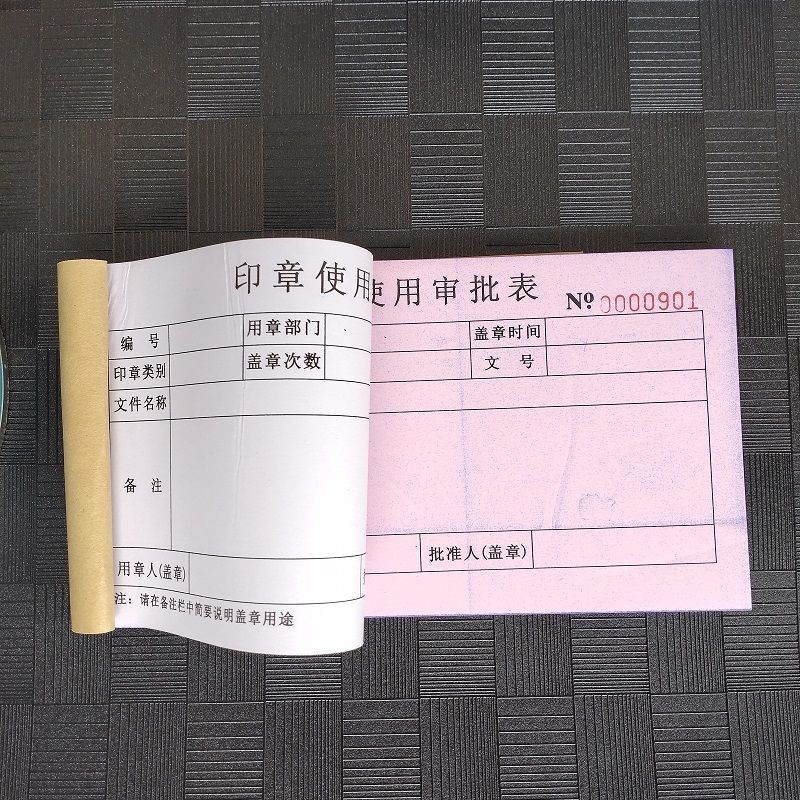 印章使用
使用审批表
№ 0000901
编 号
用章部门
盖章时间
印章类别
盖章次数
文 号
文件名称
备 注
用章人(盖章)
批准人(盖章)
注：请在备注栏中简要说明盖章用途